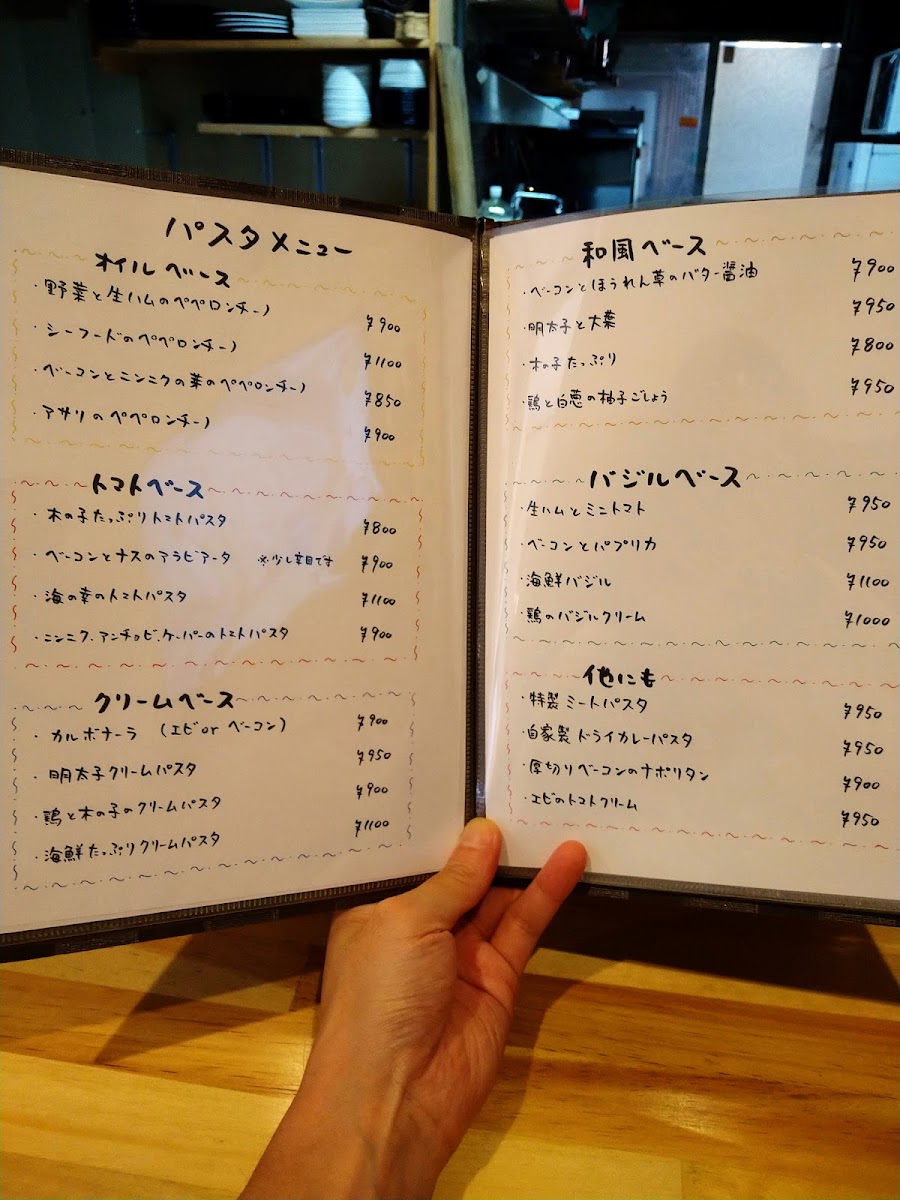 パスタメニュー
オイルベース
・野菜と生ハムのペペロンチーノ ¥900
・シーフードのペペロンチーノ ¥1100
・ベーコンとニンニクの芽のペペロンチーノ ¥850
・アサリのペペロンチーノ ¥900
トマトベース
・木の子たっぷりトマトパスタ ¥800
・ベーコンとナスのアラビアータ ※少し辛目です ¥900
・海の幸のトマトパスタ ¥1100
・ニンニク.アンチョビ.ケーパーのトマトパスタ ¥900
クリームベース
・カルボナーラ (エビor ベーコン) ¥900
・明太子クリームパスタ ¥950
・鶏と木の子のクリームパスタ ¥900
・海鮮たっぷりクリームパスタ ¥1100
和風ベース
・ベーコンとほうれん草のバター醤油 ¥900
・明太子と大葉 ¥950
・木の子たっぷり ¥800
・鶏と白葱の柚子ごしょう ¥950
バジルベース
・生ハムとミニトマト ¥950
・ベーコンとパプリカ ¥950
・海鮮バジル ¥1100
・鶏のバジルクリーム ¥1000
他にも
・特製ミートパスタ ¥950
・自家製ドライカレーパスタ ¥950
・厚切りベーコンのナポリタン ¥900
・エビのトマトクリーム ¥950